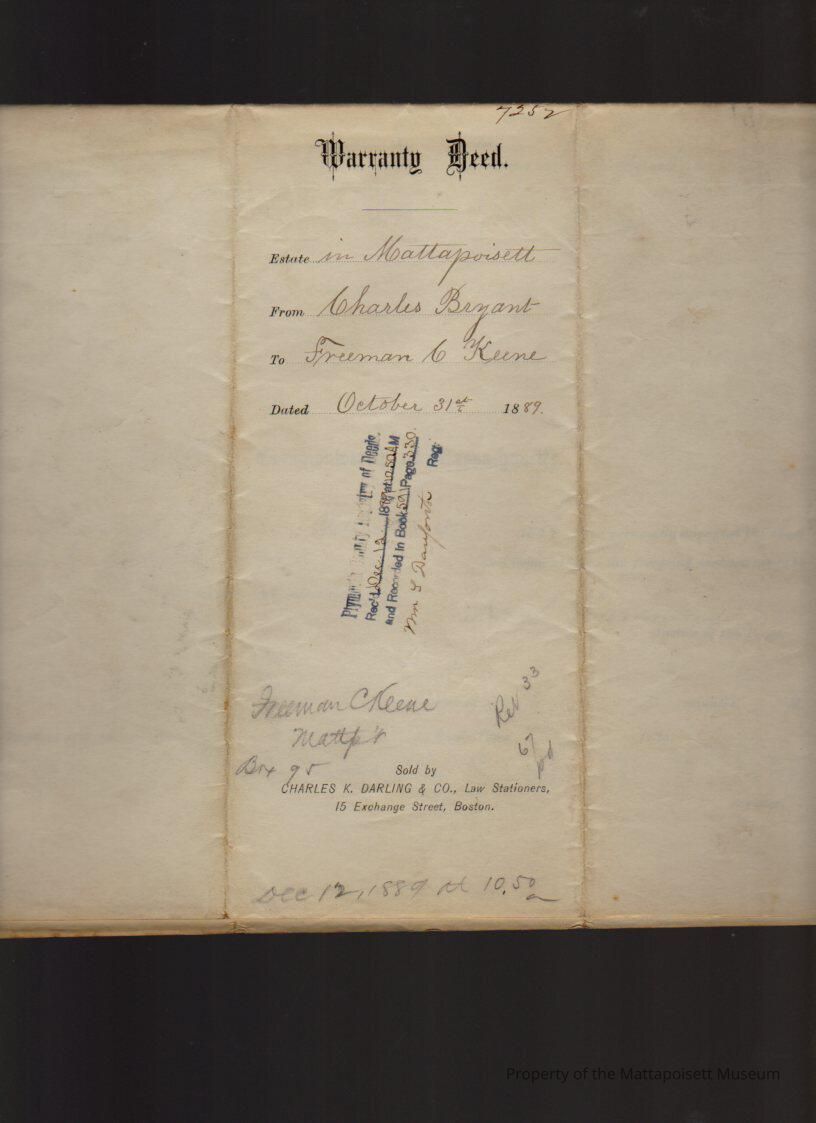 7252
Warranty Deed.
Estate in Mattapoisett
From Charles Bryant
To Freeman C Keene
Dated October 31st 1889.
Plymouth County Registry of Deeds.
Rec'd Dec. 12 1889 at 10.50 AM
and Recorded in Book Page 330.
Wm S Danforth Reg.
Freeman C Keene
Mattp't
Box 95
33
67
pd
Sold by
CHARLES K. DARLING & CO., Law Stationers,
15 Exchange Street, Boston.
Dec 12, 1889 at 10.50 a
Property of the Mattapoisett Museum